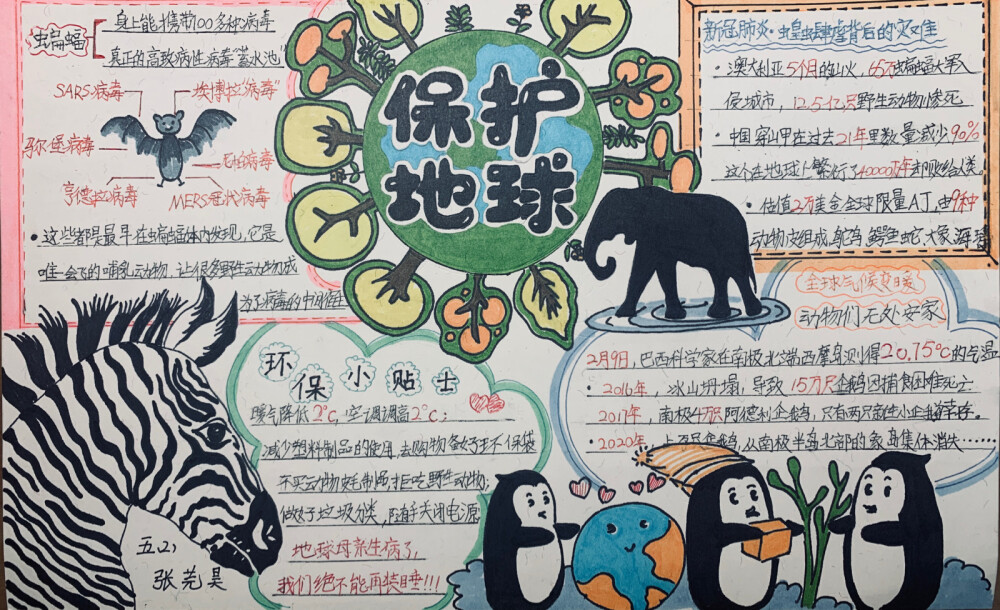 蝙蝠
身上能携带100多种病毒
真正的高致病性病毒"蓄水池"
SARS病毒
埃博拉病毒
马尔堡病毒
亨德拉病毒
MERS冠状病毒
这些都是最早在蝙蝠体内发现,它是
唯一会飞的哺乳动物,让很多野生动物成
为了病毒的中间宿主
保护
地球
新冠肺炎、蝗虫肆虐背后的灾难
澳大利亚5个月的山火,6万只蝙蝠大军入
侵城市,12.5亿只野生动物惨死
中国穿山甲在过去21年里数量减少90%
这个在地球上繁衍了4000万年
估值2万美金全球限量AJ,由9种
动物皮组成,鸵鸟、鳄鱼、蛇、大象、海
全球气候变暖
动物们无处安家
2月9日,巴西科学家在南极北端西摩岛测得20.75℃的气温
2016年,冰山坍塌,导致15万只企鹅因捕食困难死亡
2017年,南极4万只阿德利企鹅,只有两只新生小企鹅幸存。
2020年,上万只企鹅,从南极半岛北部的象岛集体消失……
环保小贴士
暖气降低2℃,空调调高2℃;
减少塑料制品的使用,去购物备好环保袋
不买动物皮毛制品,拒吃野生动物;
做好垃圾分类,随手关闭电源
地球母亲生病了,
我们绝不能再装睡!!!
五(2)
张芫昊